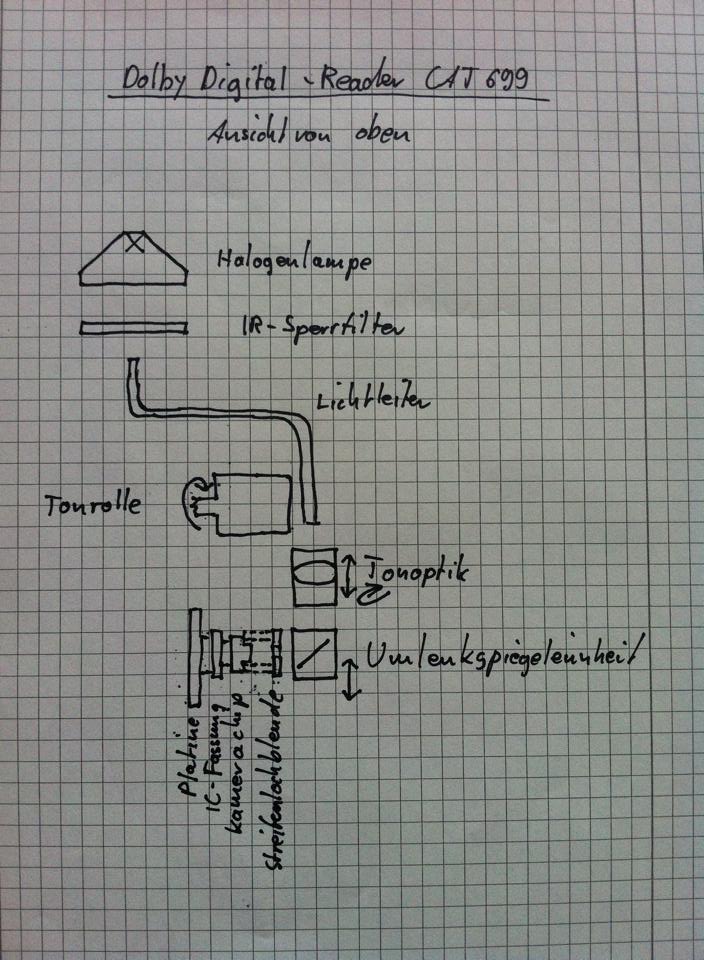 Dolby Digital - Reader CAT 699
Ansicht von oben
Halogenlampe
IR-Sperrfilter
Lichtleiter
Tonrolle
Tonoptik
Umlenkspiegeleinheit
Platine
IC-Fassung
Kamerachip
Streifenlochblende